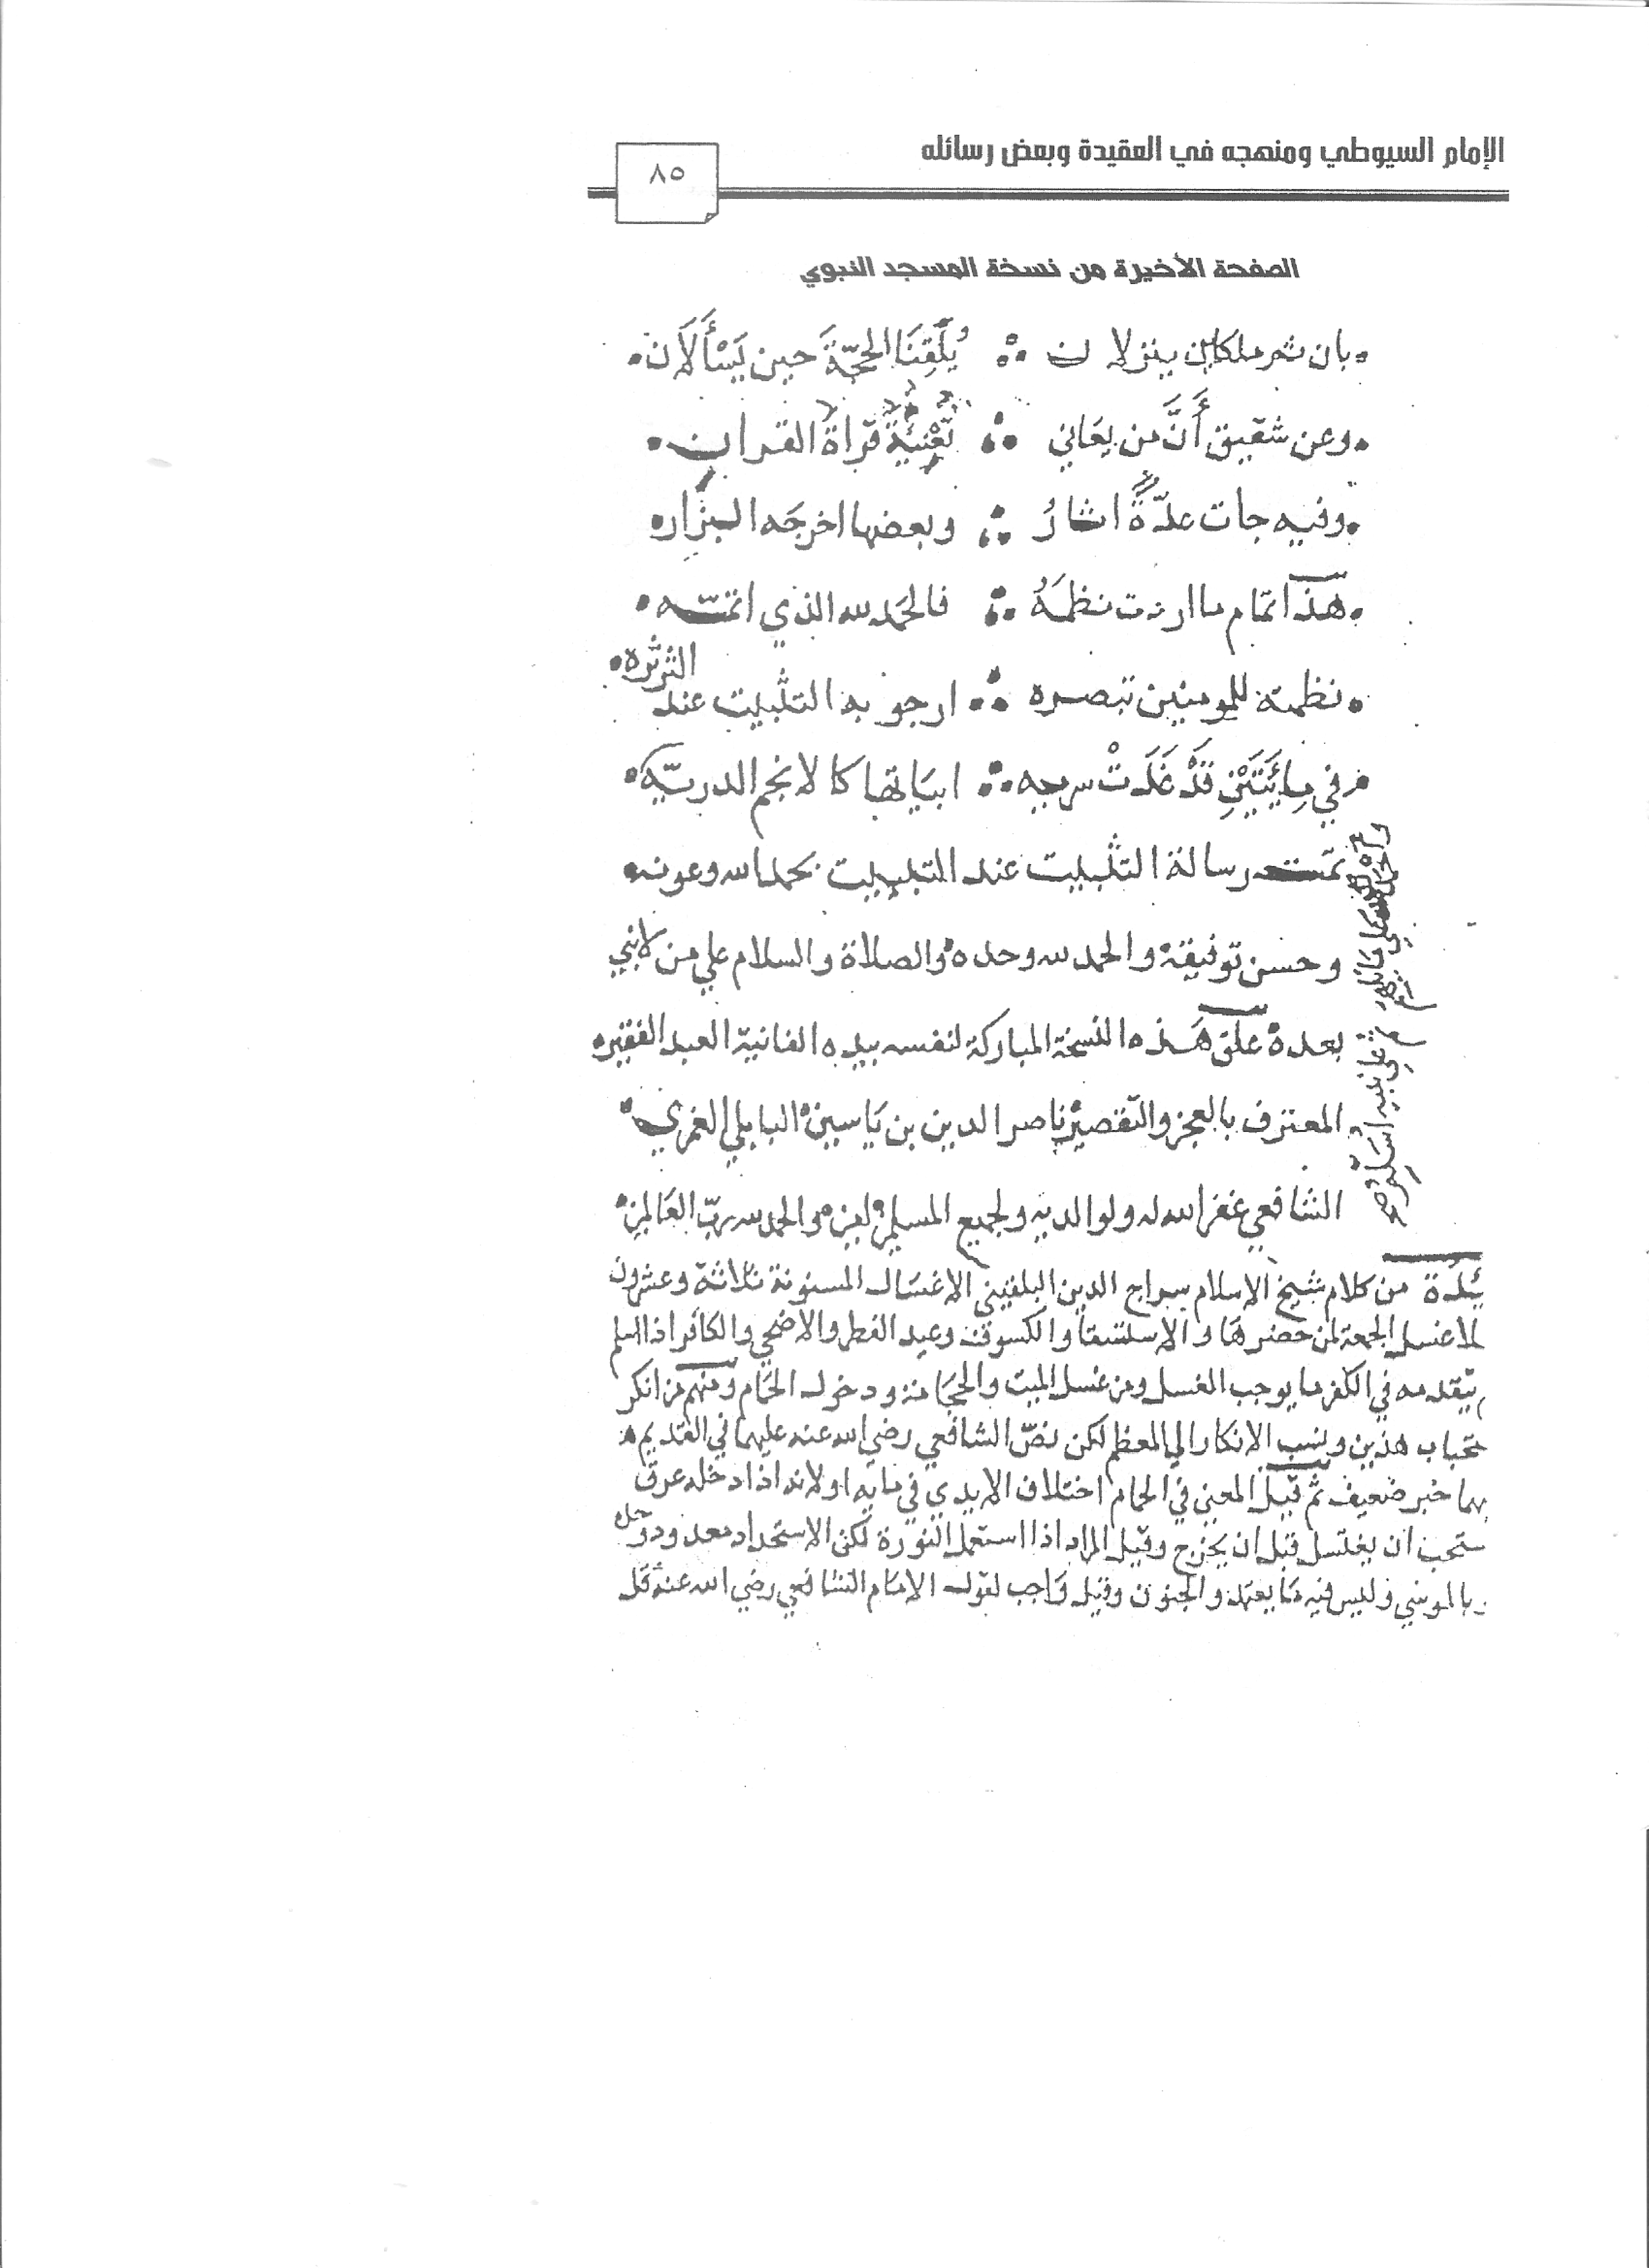 الإمام السيوطي ومنهجه في العقيدة وبعض رسائله
٨٥
الصفحة الأخيرة من نسخة المسجد النبوي
بان ثم ملكان ينزلان ∴ يُلَقِّنَا الحجّةَ حين يَسْأَلَان
وعن شقيق أَنَّ من يعَاني ∴ قراة القران
وفيه جات عدّةٌ اثارُ ∴ وبعضها اخرجَه البزار
هذا تمام ما اردت نظمَهُ ∴ فالحَمد لله الذي اتمّه
نظمته للمومنين تبصره ∴ ارجو به التثبيت عند الثرثره
في قَدْ غَدَتْ ∴ ابيَاتها كالانجم الدريّه
تمت رسالة التثبيت عند التبييت بحمد الله وعونه
وحسن توفيقه والحمد لله وحده والصلاة والسلام علي من لا نبي
بعده علق هَذه النسخة المباركة لنفسه بيده الفانية العبد الفقير
المعترف بالعجز والتقصير ناصر الدين بن يَاسين البابلي الغمري
الشافعي غفر الله له ولوالديه ولجميع المسلمين والحمد لله ربّ العَالمين
من كلام شيخ الاسلام سراج الدين البلقيني الاغسَال المسنونة ثلاثة وعشرون
غسل الجمعة لمن حضرهَا والاستسقا والكسوف وعيد الفطر والاضحي والكافر اذا اسلم
يتقدمه في الكفر ما يوجب الغسل ومن غسل الميت والحجَامة ودخول الحَمام ومنهم من انكر
هذين ونسب الانكار الي المعظم لكن نصّ الشافعي رضي الله عنه عليهما في القديم
خبر ضعيف ثم قيل المعني في الحمام اختلاف الايدي في مايه او لانه اذا دخله عرق
ان يغتسل قبل ان يخرج وقيل المراد اذا استعمل النورة لكن الاستحداد معدود
وليس فيه والجنون وقيل وَاجب لقول الامَام الشافعي رضي الله عنه قل